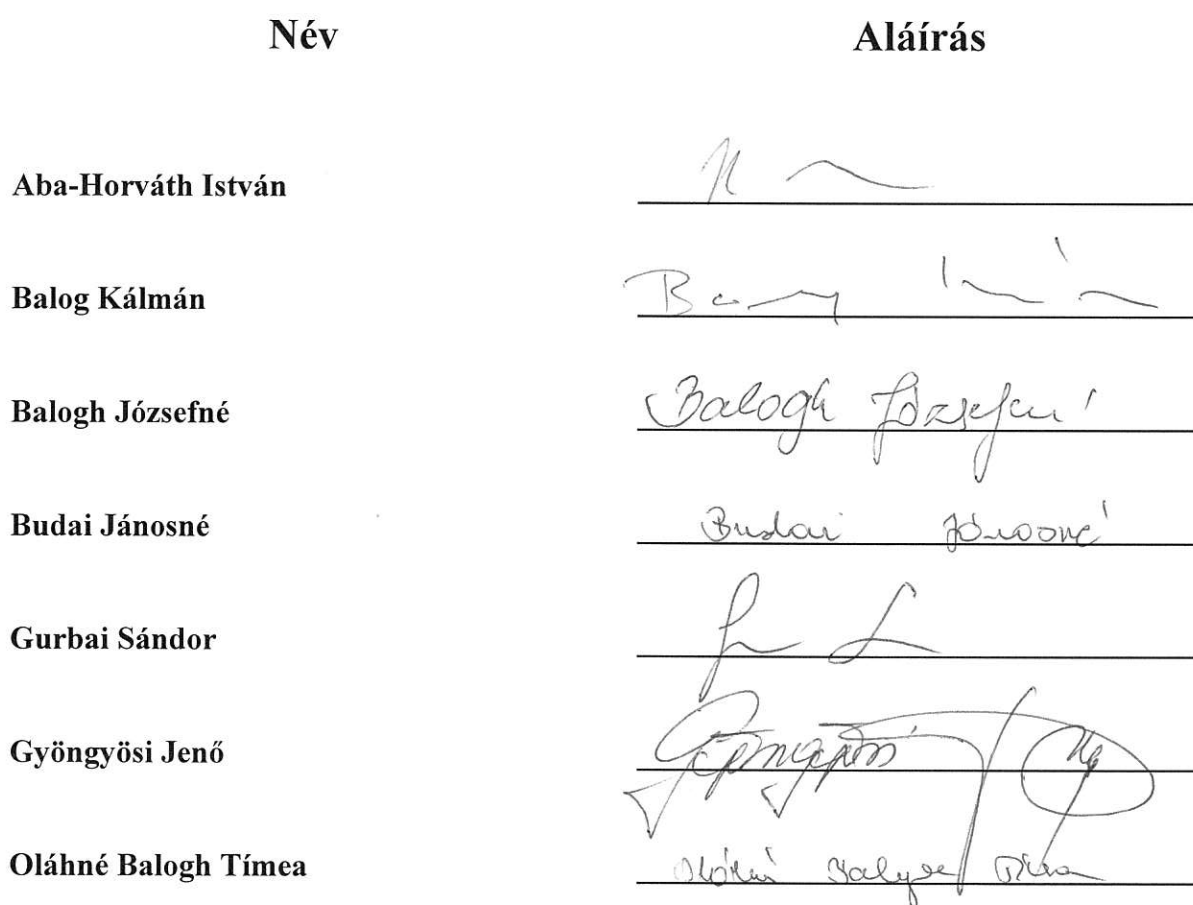 Név Aláírás
Aba-Horváth István
Balog Kálmán
Balogh Józsefné Balogh Józsefné
Budai Jánosné Budai Jánosné
Gurbai Sándor
Gyöngyösi Jenő Gyöngyösi
Oláhné Balogh Tímea Oláhné Balogh Tímea